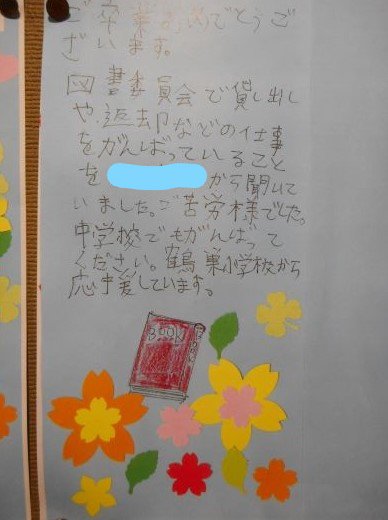 ご卒業おめでとうご
ざいます。
図書委員会で貸し出し
や、返却などの仕事
をがんばっていること
を から聞いて
いました。ご苦労様でした。
中学校でもがんばって
ください。鶴巣小学校から
応援しています。
BOOK